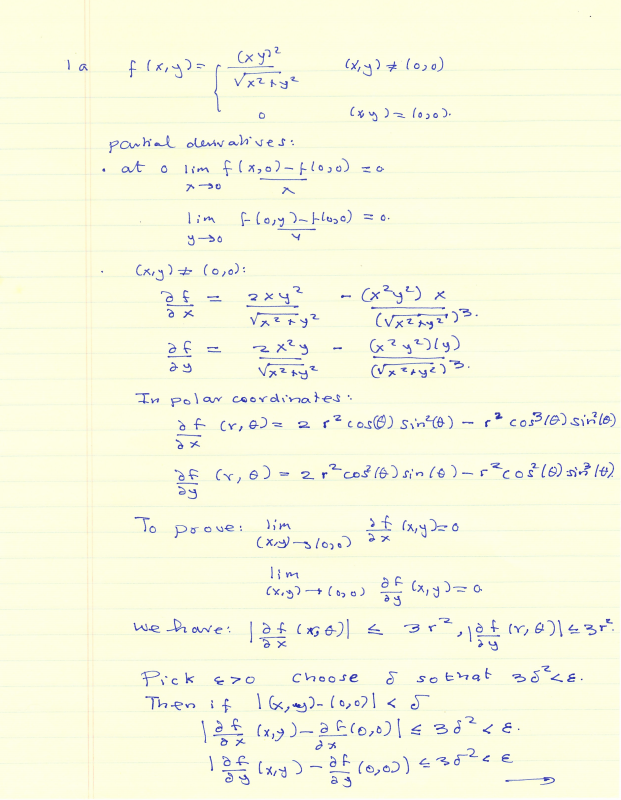 1a f(x,y) = { (xy)² / √(x²+y²) (x,y) ≠ (0,0)
0 (x,y) = (0,0).
partial derivatives:
• at 0 lim x→0 (f(x,0) - f(0,0)) / x = 0
lim y→0 (f(0,y) - f(0,0)) / y = 0.
• (x,y) ≠ (0,0):
∂f/∂x = 2xy² / √(x²+y²) - (x²y²) x / (√(x²+y²))³.
∂f/∂y = 2x²y / √(x²+y²) - (x²y²)(y) / (√(x²+y²))³.
In polar coordinates:
∂f/∂x (r,θ) = 2 r² cos(θ) sin²(θ) - r² cos³(θ) sin²(θ)
∂f/∂y (r,θ) = 2 r² cos²(θ) sin(θ) - r² cos²(θ) sin³(θ).
To prove: lim (x,y)→(0,0) ∂f/∂x (x,y) = 0
lim (x,y)→(0,0) ∂f/∂y (x,y) = 0.
We have: |∂f/∂x (r,θ)| ≤ 3r², |∂f/∂y (r,θ)| ≤ 3r².
Pick ε>0 choose δ so that 3δ² < ε.
Then if |(x,y)-(0,0)| < δ
|∂f/∂x (x,y) - ∂f/∂x (0,0)| ≤ 3δ² < ε.
|∂f/∂y (x,y) - ∂f/∂y (0,0)) ≤ 3δ² < ε →